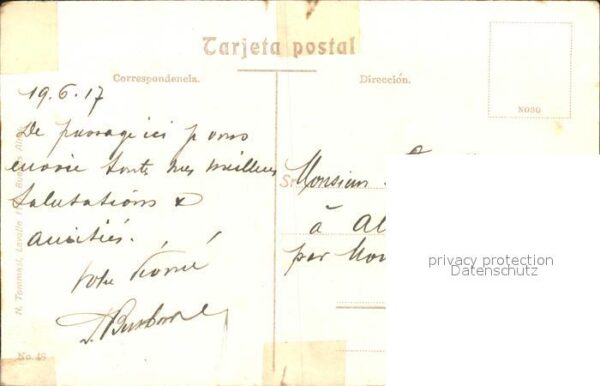 Tarjeta postal
Correspondencia.
Dirección.
NO30
19.6.17
De passage ici je vous
envoie toutes mes meilleures
salutations &
amitiés.
Votre dévoué
Monsieur
à Al
par Mon
Sr.
privacy protection
Datenschutz
H. Tommasi, Lavalle Buenos Aires
No. 48